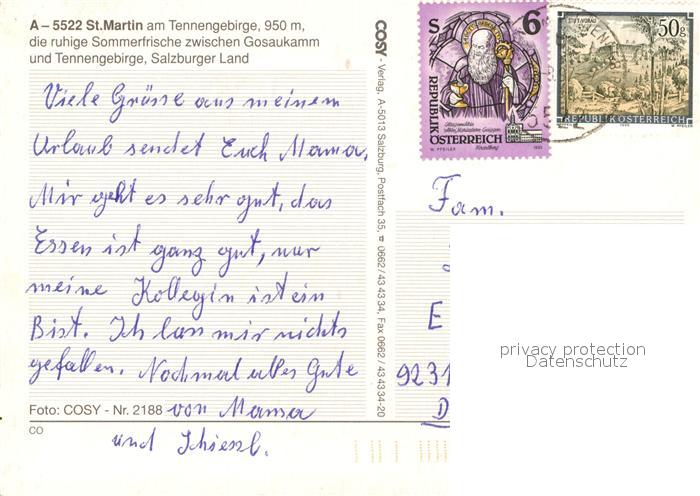 A – 5522 St. Martin am Tennengebirge, 950 m,
die ruhige Sommerfrische zwischen Gosaukamm
und Tennengebirge, Salzburger Land
Viele Grüsse aus meinem
Urlaub sendet Euch Mama.
Mir geht es sehr gut, das
Essen ist ganz gut, nur
meine Kollegin ist ein
Bist. Ich lass mir nichts
gefallen. Nochmal alles Gute
von Mama
und
Foto: COSY - Nr. 2188
CO
COSY - Verlag, A-5013 Salzburg, Postfach 35, ☎ 0662/43 43 34, Fax 0662/43 43 34-20
S 6
REPUBLIK
ÖSTERREICH
STIFT VORAU
50g
REPUBLIK ÖSTERREICH
Fam.
E
9231
D
privacy protection
Datenschutz